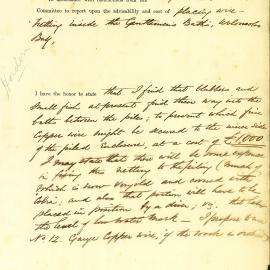 In accordance with instructions from the
Committee to report upon the advisability and cost of placing wire-
netting inside the Gentlemen's Baths, Woolloomooloo
Bay,
I have the honor to state that I find that blubbers and
small fish at present find their way into the
baths between the piles; to prevent which fine
Copper wire might be secured to the inner side
of the piled Enclosure, at a cost of £1000
I may state that there will be some expense
in fixing the netting to the piling
which is now very old and
and also that portion will have to be
placed in position by a diver, viz. that below
the level of low water mark — I propose to use
No 12 Gauge Copper wire, if the work is ordered